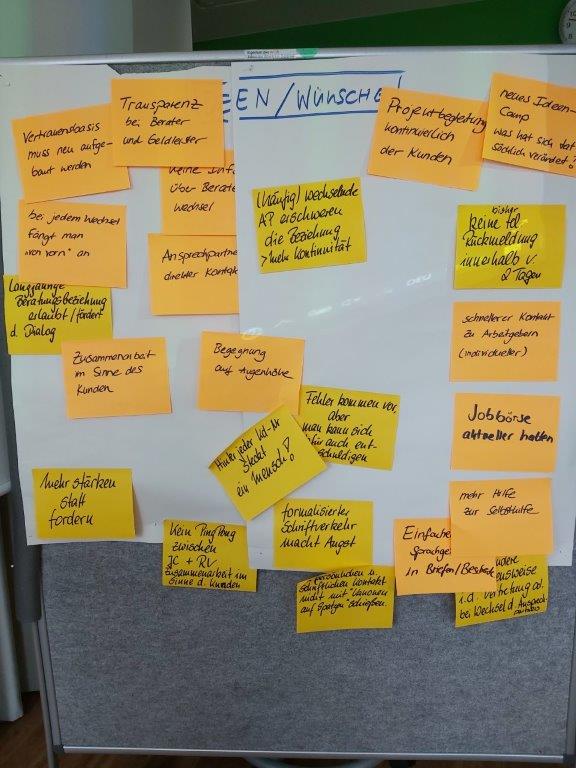 EEN/WÜNSCHE
Vertrauensbasis
muss neu aufge-
baut werden
Transparenz
bei Berater
und Geldleister
keine Info
über Berate
wechsel
bei jedem Wechsel
fängt man
"von vorn" an
Ansprechpartne
direkter Kontak
Langjährige
Beratungsbeziehung
erlaubt/fördert
d. Dialog
Zusammenarbeit
im Sinne des
Kunden
Begegnung
auf Augenhöhe
(häufig) wechselnde
AP erschweren
die Beziehung
> mehr Kontinuität
Projektbegleitung
kontinuierlich
der Kunden
neues Ideen-
Camp
was hat sich tat
sächlich verändert?
bisher
keine tel.
Rückmeldung
innerhalb v.
2 Tagen
schnellerer Kontakt
zu Arbeitgebern
(individueller)
Jobbörse
aktueller halten
mehr Hilfe
zur Selbsthilfe
Fehler kommen vor,
aber
man kann sich
auch ent-
schuldigen
Hinter jeder Kd-Nr
steckt
ein Mensch!
mehr stärken
statt
fordern
Kein PingPong
zwischen
JC + RV
Zusammenarbeit im
Sinne d. Kunden
formalisierter
Schriftverkehr
macht Angst
Einfache
Sprache
in Briefen/Besche
persönlichen u.
schriftlichen Kontakt
nicht mit "Kanonen
auf Spatzen" schießen.
ndere
ensweise
i.d. Vertretung od.
bei Wechsel d. Ansprech-
partners